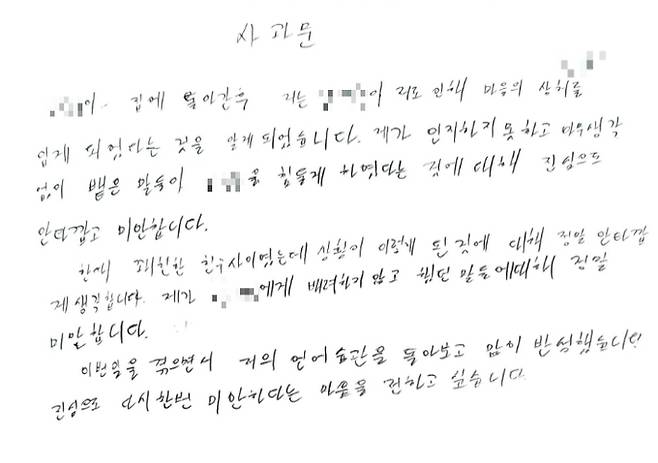 사과문
이 집에 돌아간후 저는 이 저로 인해 마음의 상처를
입게 되었다는 것을 알게 되었습니다. 제가 인지하지 못하고 아무생각
없이 뱉은 말들이 을 힘들게 하였다는 것에 대해 진심으로
안타깝고 미안합니다.
한때 꽤친한 친구사이였는데 상황이 이렇게 된것에 대해 정말 안타깝
게 생각합니다. 제가 에게 배려하지 않고 했던 말들에대해 정말
미안합니다.
이번일을 겪으면서 저의 언어습관을 돌아보고 많이 반성했습니다
진심으로 다시한번 미안하다는 마음을 전하고 싶습니다.